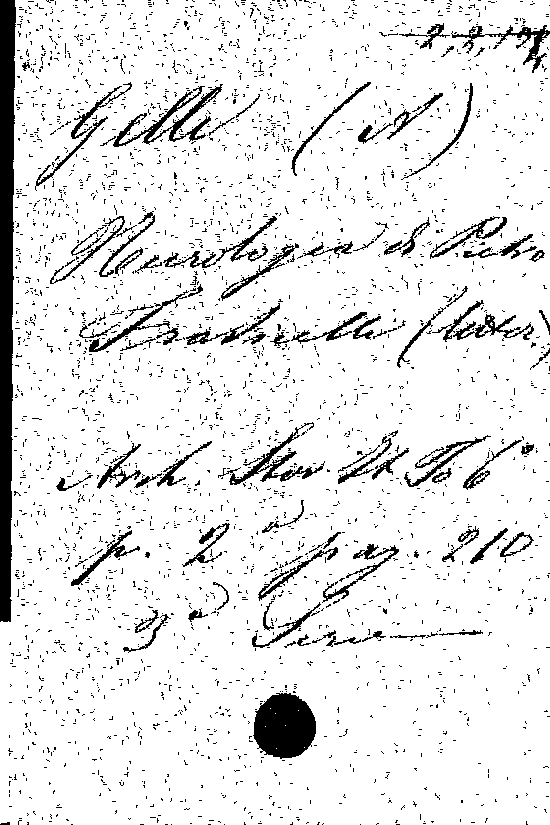 2,2,13
Gelli (A)
Necrologia di Pietro
Fraticelli (letter.)
Arch. Stor. It To 6°
p. 2ª pag. 210
3ª Serie